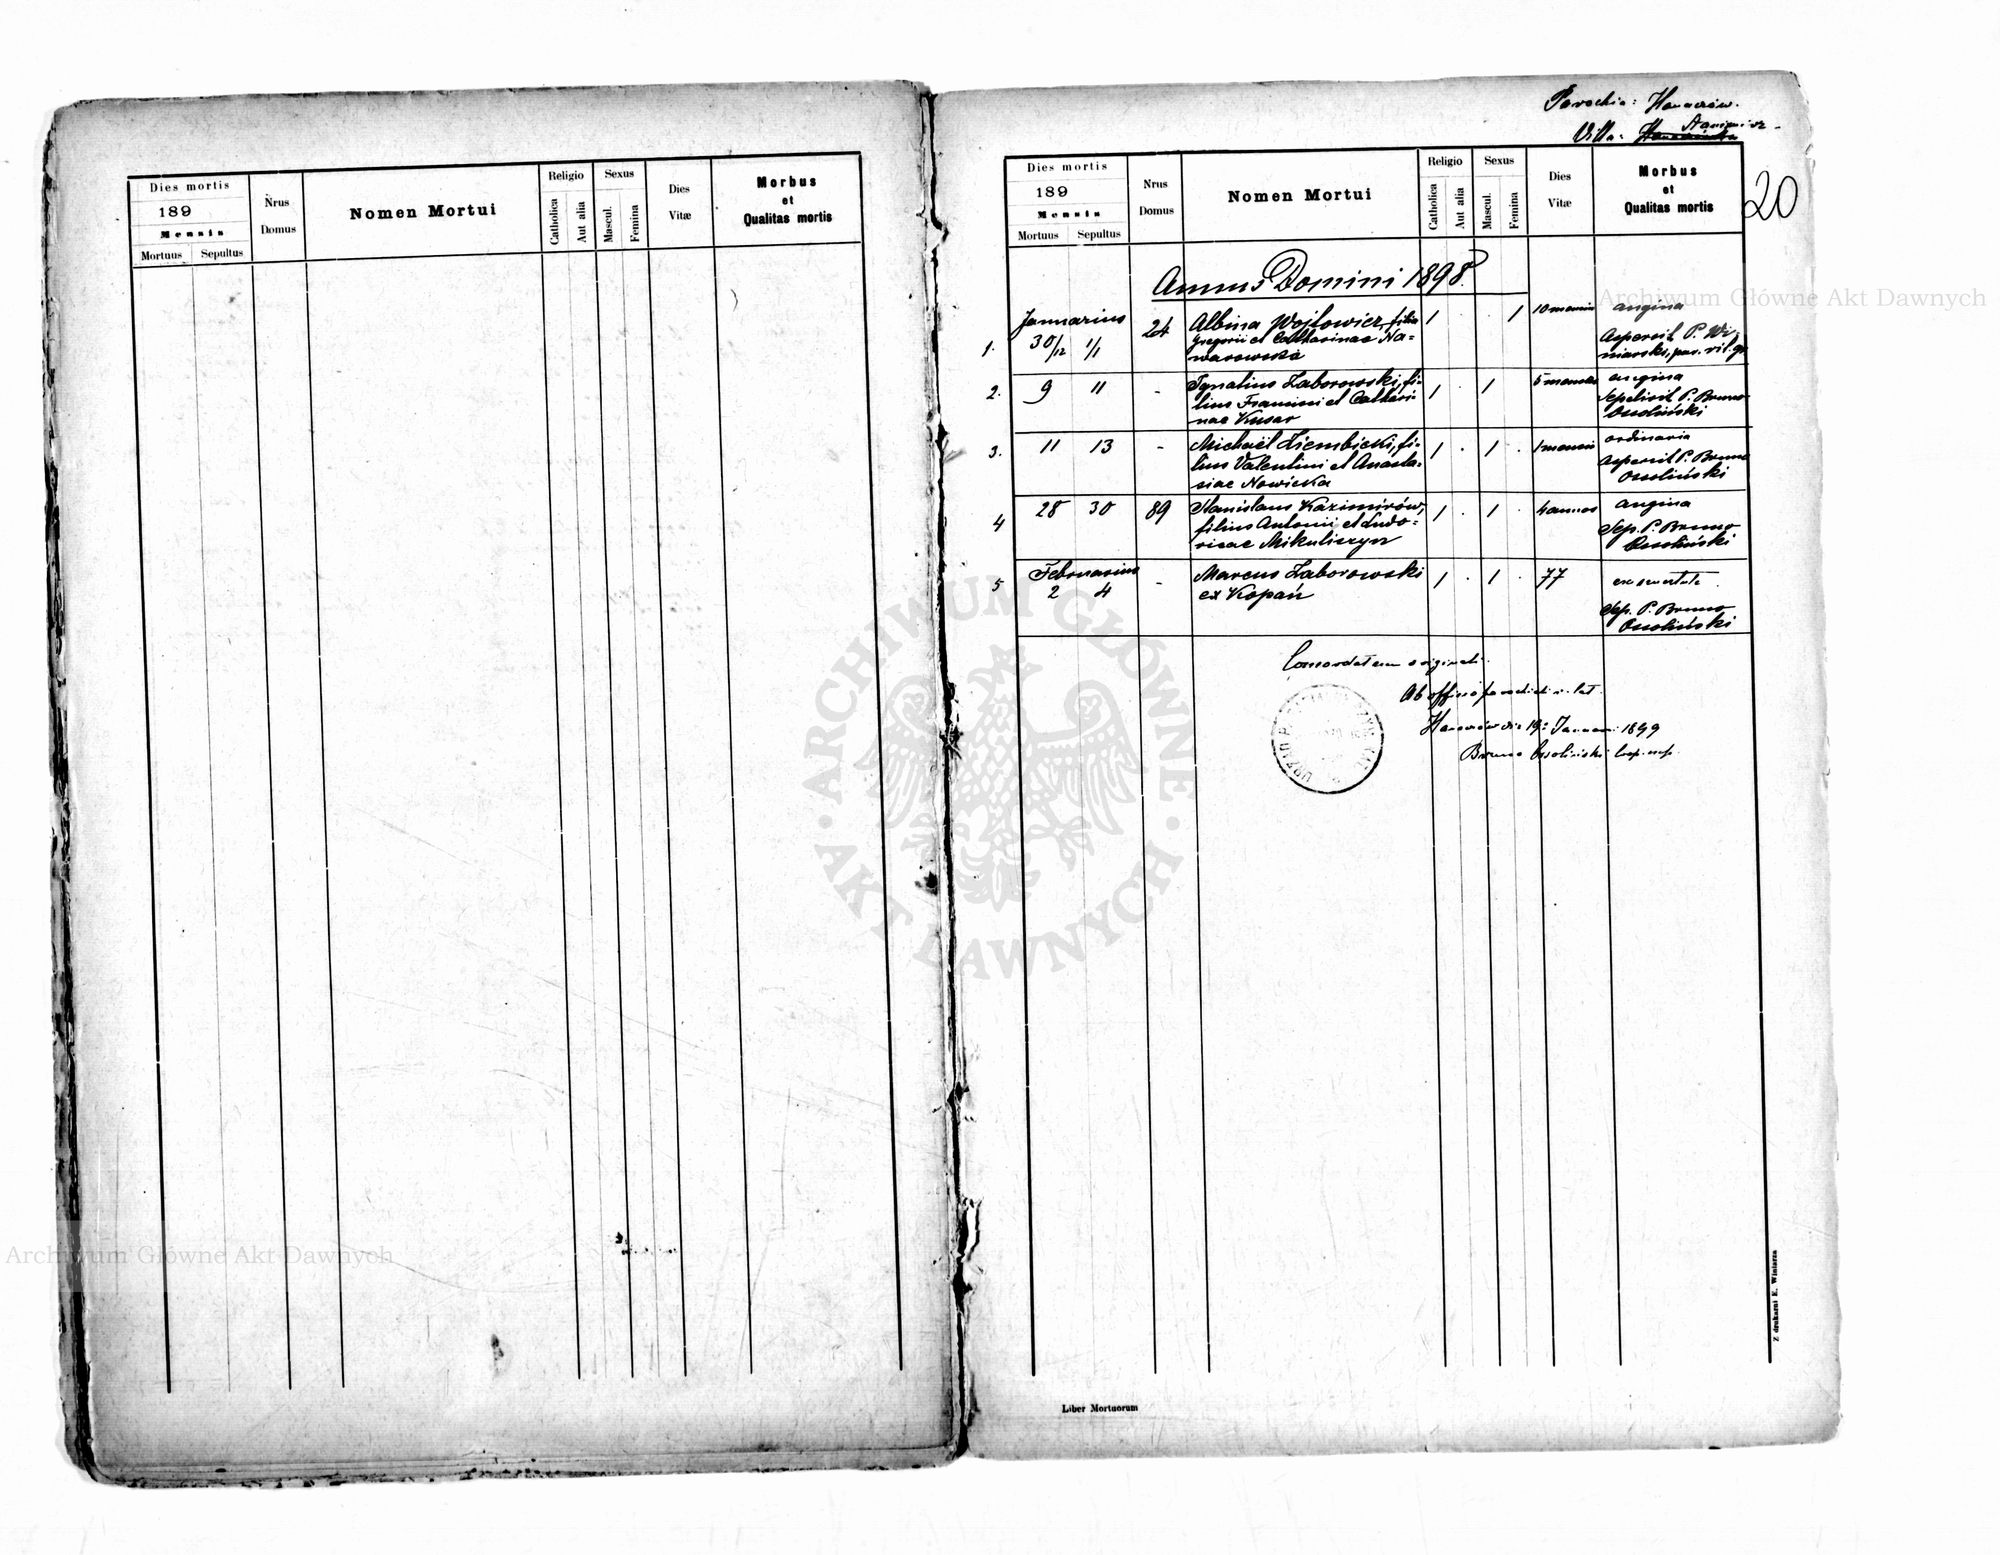 Dies mortis
189
Mensis
Mortuus Sepultus
Nrus
Domus
Nomen Mortui
Religio
Catholica
Aut alia
Sexus
Mascul.
Femina
Dies
Vitæ
Morbus
et
Qualitas mortis
Parochia: Hanaczów.
Villa:
20
Dies mortis
189
Mensis
Mortuus Sepultus
Nrus
Domus
Nomen Mortui
Religio
Catholica
Aut alia
Sexus
Mascul.
Femina
Dies
Vitæ
Morbus
et
Qualitas mortis
Annus Domini 1898.
Januarius
1. 30/12 1/1 24 Albina Wojtowicz, filia
Gregorii et Catharinae Na=
warowska
1 . . 1 10 mensis angina
Aspersit P. Wi=
niarski, par. rit. gr.
2. 9 11 - Ignatius Zaborowski, fi-
lius Francisci et Cathari-
nae Kusar
1 . 1 5 menses angina
Sepelivit P. Bruno
Ossoliński
3. 11 13 - Michaël Ziembicki, fi-
lius Valentini et Anasta-
siae Nowicka
1 . 1 . 1 mensis ordinaria
Aspersit P. Bruno
Ossoliński
4 28 30 89 Stanislaus Kazimirów,
filius Antonii et Ludo-
vicae Mikuliczyn
1 . 1 . 4 annos angina
Sep. P. Bruno
Ossoliński
Februarius
5 2 4 - Marcus Zaborowski
ex Kopań
1 . 1 . 77 ex senectute
Sep. P. Bruno
Ossoliński
Concordat cum originali.
Ab officio parochiali r. lat.
Hanaczów die 19. Januarii 1899
Bruno Ossoliński Coop. exp.
Liber Mortuorum
Z drukarni E. Winiarza
Archiwum Główne Akt Dawnych
Archiwum Główne Akt Dawnych
ARCHIWUM GŁÓWNE · AKT DAWNYCH ·